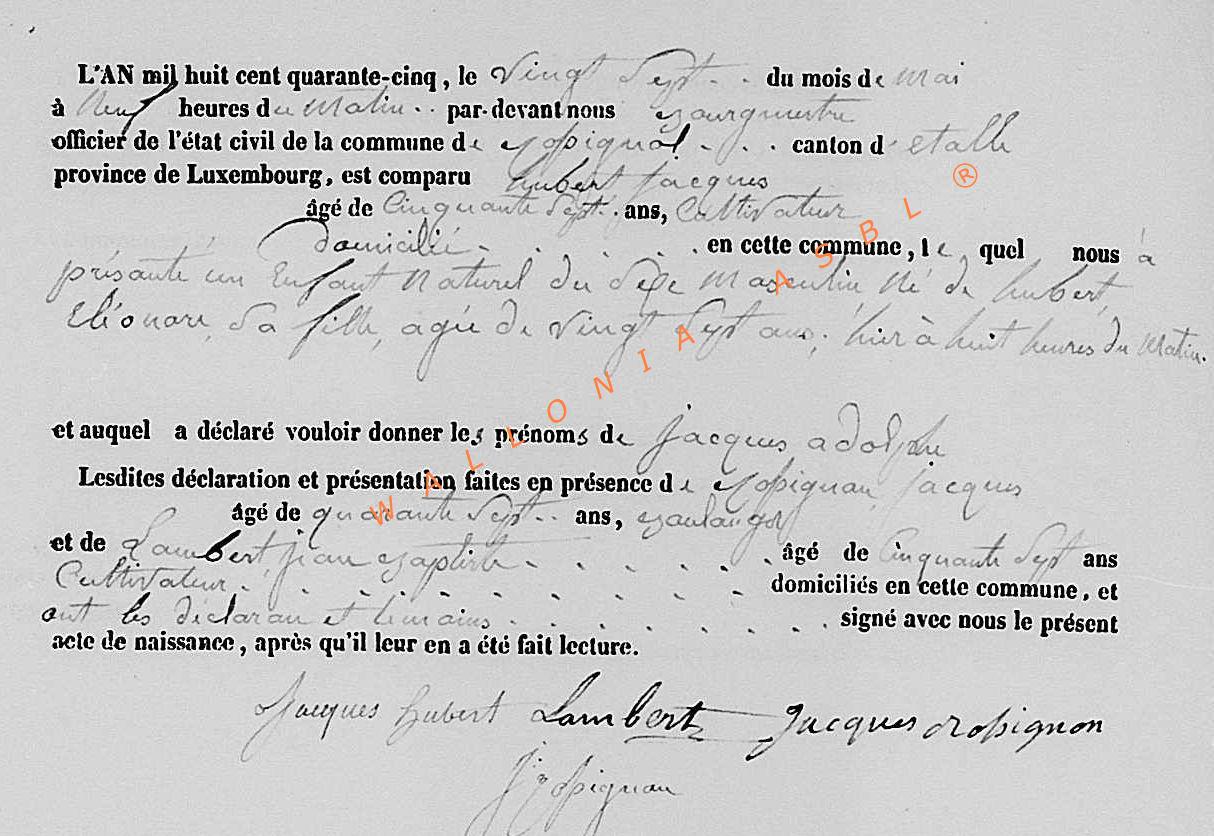 L'AN mil huit cent quarante-cinq, le Vingt Sept . . du mois de Mai
à Neuf heures du Matin . . par-devant nous Bourgmestre
officier de l'état civil de la commune de Rossignol . . . canton d'etalle
province de Luxembourg, est comparu hubert jacques
âgé de Cinquante Sept . . ans, Cultivateur
Domicilié . . . . . en cette commune, le quel nous à
présante un Enfant Naturel du Sexe Masculin Né de hubert,
Eléonore, Sa fille, agée de Vingt Sept ans, hier à huit heures du Matin.
et auquel a déclaré vouloir donner les prénoms de jacques adolphe
Lesdites déclaration et présentation faites en présence de Rossignon jacques
âgé de quarante Sept . . ans, Boulanger
et de Lambert, jean Baptiste . . . . . âgé de Cinquante Sept ans
Cultivateur . . . . . . . . . domiciliés en cette commune, et
ont les déclaran et temoins . . . . . . . signé avec nous le présent
acte de naissance, après qu'il leur en a été fait lecture.
Jacques hubert Lambert Jacques rossignon
J Rossignon
WALLONIA ASBL ®